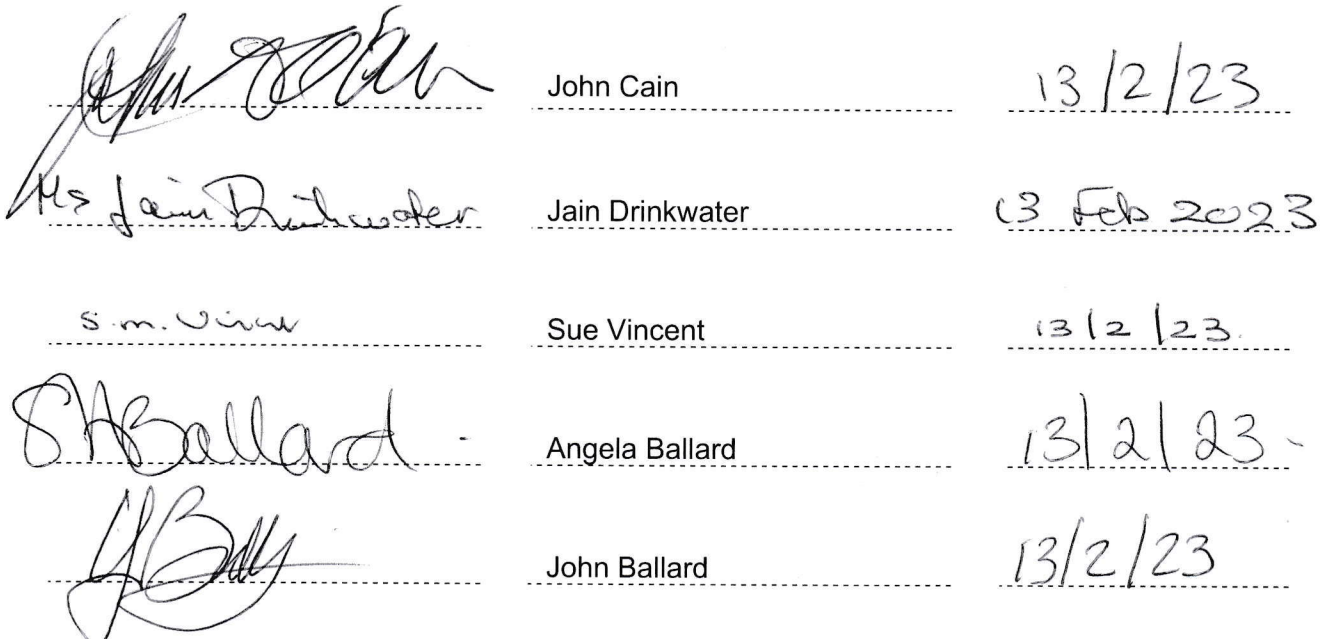 John Cain John Cain 13/2/23
Ms Jain Drinkwater Jain Drinkwater 13 Feb 2023
S.m. Sue Vincent 13/2/23.
SABallard Angela Ballard 13/2/23
John Ballard 13/2/23